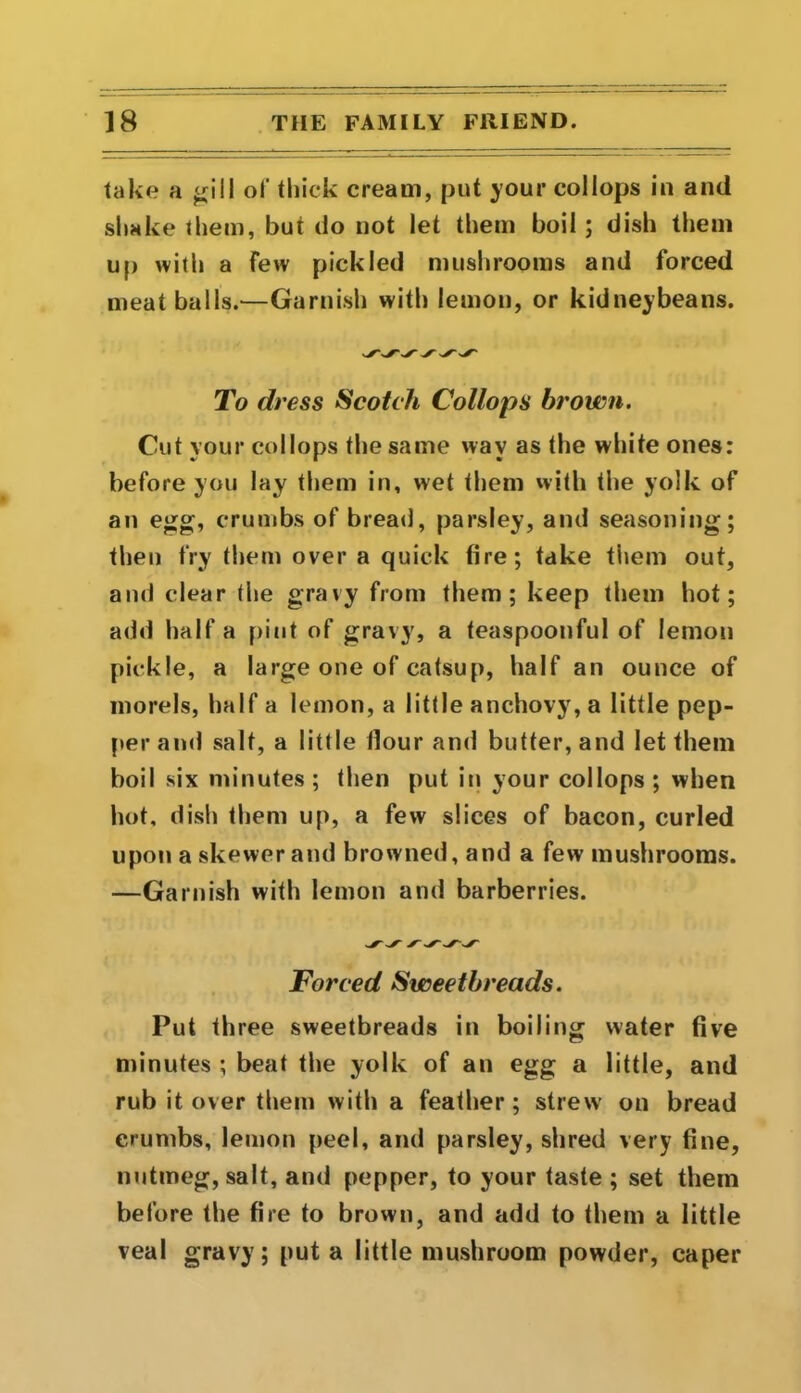 18 THE FAMILY FRIEND.
take a gill of thick cream, put your collops in and
shake them, but do not let them boil; dish them
up with a few pickled mushrooms and forced
meat balls.—Garnish with lemon, or kidneybeans.
To dress Scotch Collops brown.
Cut your collops the same way as the white ones:
before you lay them in, wet them with the yolk of
an egg, crumbs of bread, parsley, and seasoning;
then fry them over a quick fire; take them out,
and clear the gravy from them; keep them hot;
add half a pint of gravy, a teaspoonful of lemon
pickle, a large one of catsup, half an ounce of
morels, half a lemon, a little anchovy, a little pep-
per and salt, a little flour and butter, and let them
boil six minutes; then put in your collops; when
hot, dish them up, a few slices of bacon, curled
upon a skewer and browned, and a few mushrooms.
—Garnish with lemon and barberries.
Forced Sweetbreads.
Put three sweetbreads in boiling water five
minutes; beat the yolk of an egg a little, and
rub it over them with a feather; strew on bread
crumbs, lemon peel, and parsley, shred very fine,
nutmeg, salt, and pepper, to your taste; set them
before the fire to brown, and add to them a little
veal gravy; put a little mushroom powder, caper